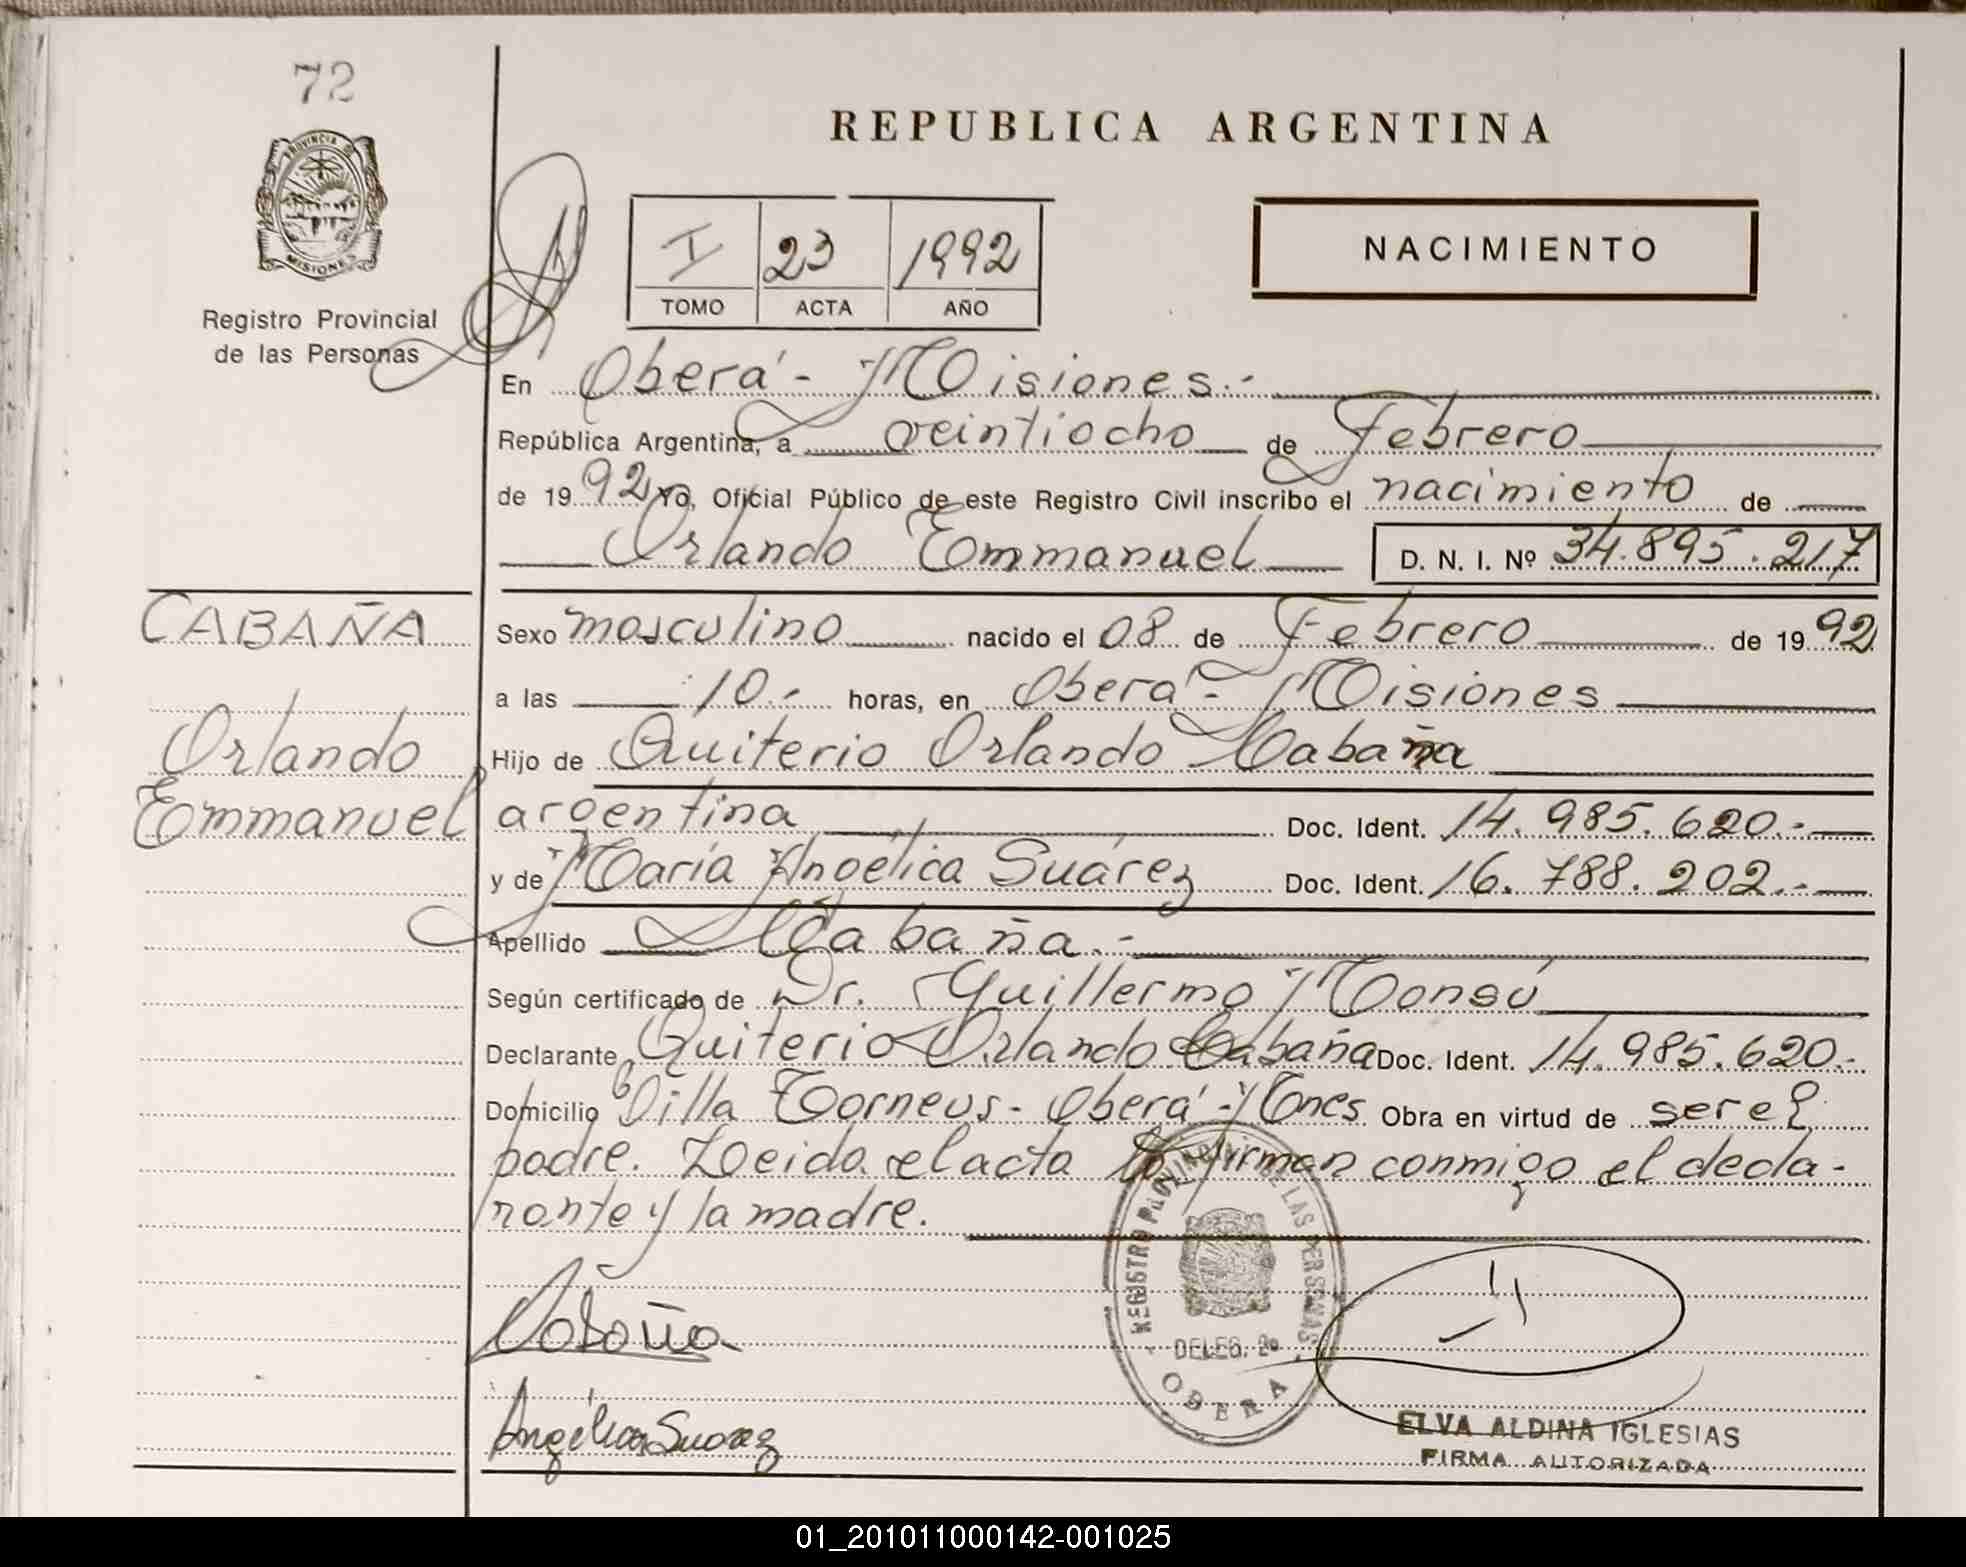 72
REPUBLICA ARGENTINA
PROVINCIA DE
MISIONES
Registro Provincial
de las Personas
I 23 1992
TOMO ACTA AÑO
NACIMIENTO
En Oberá - Misiones.-
República Argentina, a veintiocho de Febrero
de 1992 Yo, Oficial Público de este Registro Civil inscribo el nacimiento de
Orlando Emmanuel D. N. I. Nº 34.895.217
CABAÑA
Orlando
Emmanuel
Sexo masculino nacido el 08 de Febrero de 1992
a las 10.- horas, en Oberá - Misiones
Hijo de Quiterio Orlando Cabaña
argentina Doc. Ident. 14.985.620.-
y de María Angélica Suárez Doc. Ident. 16.788.202.-
Apellido Cabaña.-
Según certificado de Dr. Guillermo Monsú
Declarante Quiterio Orlando Cabaña Doc. Ident. 14.985.620.-
Domicilio Villa Torneus - Oberá - Mnes Obra en virtud de ser el
padre. Leida el acta la firman conmigo el decla-
rante y la madre.
Cabaña
REGISTRO PROVINCIAL DE LAS PERSONAS
DELEG. 2ª
OBERA
Angélica Suarez
ELVA ALDINA IGLESIAS
FIRMA AUTORIZADA
01_201011000142-001025